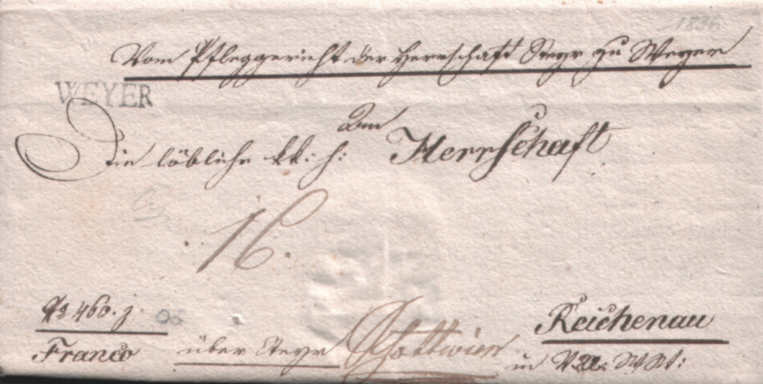 1836
Vom Pfleggericht der Herrschaft Steyr zu Weyer
WEYER
An
Die löbliche kk: h: Herrschaft
16.
460.
Franco über Steyr Schottwien
Reichenau
in V. U. W. W.: